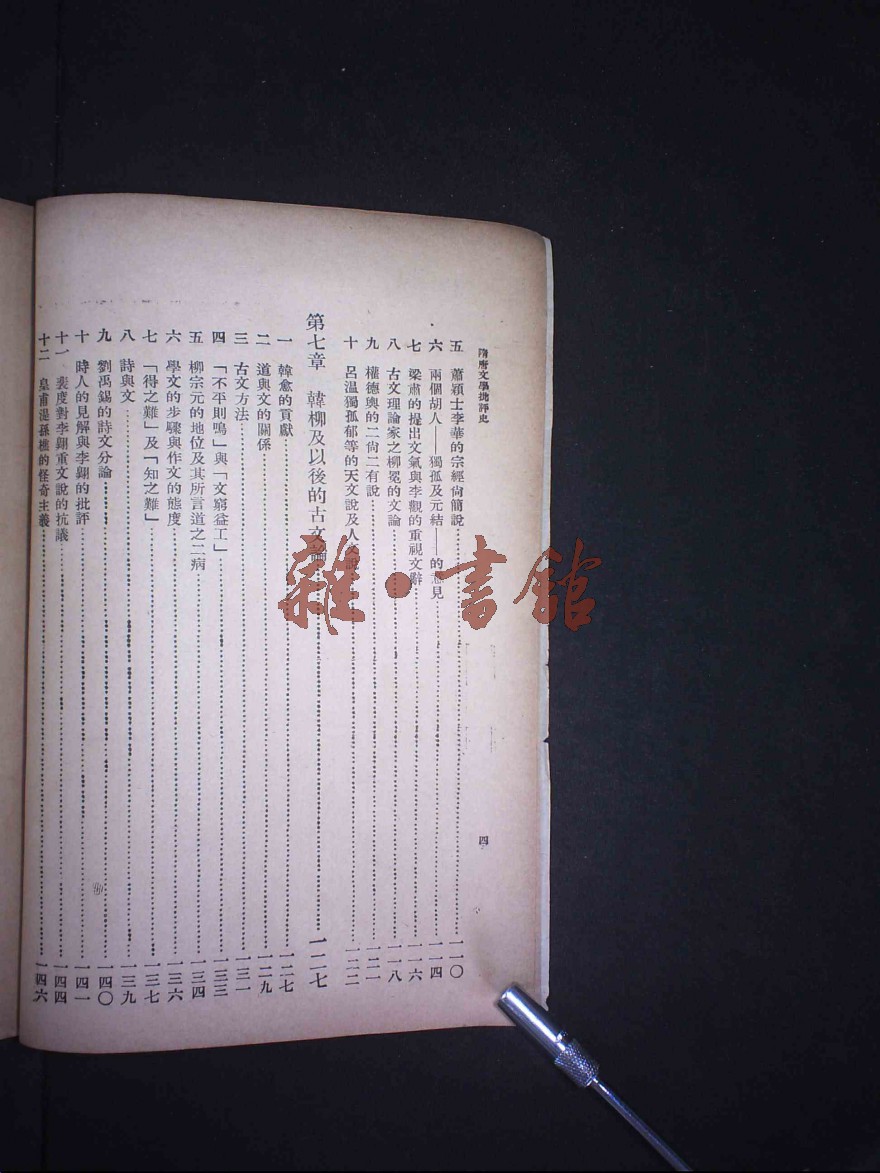 隋唐文學批評史
四
五 蕭穎士李華的宗經尚簡說………一一〇
六 兩個胡人——獨孤及元結——的意見………一一四
七 梁肅的提出文氣與李觀的重視文辭………一一六
八 古文理論家之柳冕的文論………一一八
九 權德輿的二尚二有說………一二一
十 呂溫獨孤郁等的天文說及人文說………一二二
第七章 韓柳及以後的古文論………一二七
一 韓愈的貢獻………一二七
二 道與文的關係………一二九
三 古文方法………一三一
四 「不平則鳴」與「文窮益工」………一三三
五 柳宗元的地位及其所言道之二病………一三四
六 學文的步驟與作文的態度………一三六
七 「得之難」及「知之難」………一三七
八 詩與文………一三九
九 劉禹錫的詩文分論………一四〇
十 時人的見解與李翺的批評………一四一
十一 裴度對李翺重文說的抗議………一四四
十二 皇甫湜孫樵的怪奇主義………一四六
雜·書館